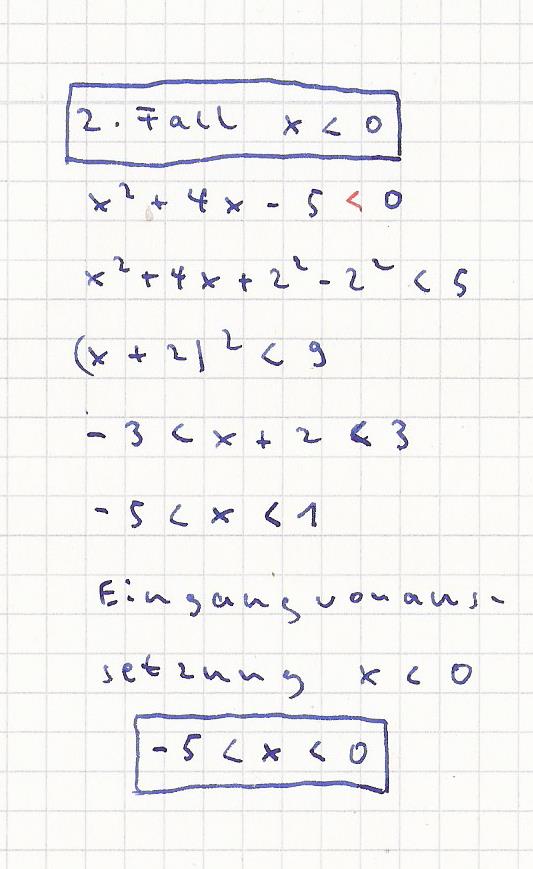 2. Fall x < 0
x² + 4x - 5 < 0
x² + 4x + 2² - 2² < 5
(x + 2)² < 9
- 3 < x + 2 < 3
- 5 < x < 1
Eingangvoraus-
setzung x < 0
- 5 < x < 0